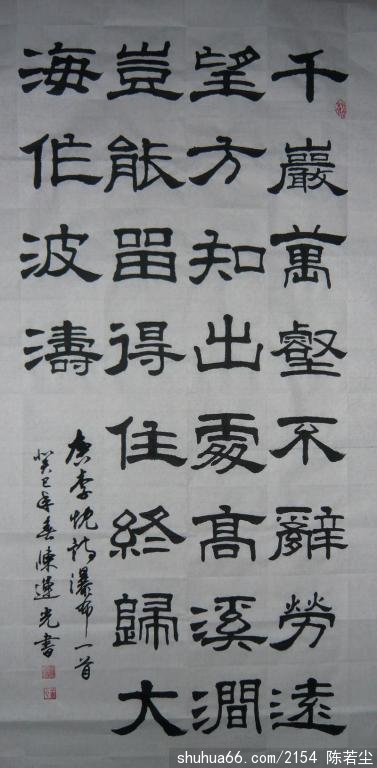 千巖萬壑不辭勞遠
望方知出處高溪澗
豈能留得住終歸大
海作波濤
唐李忱詩瀑布一首
癸巳年春陳光書
shuhua66.com/2154 陈若尘